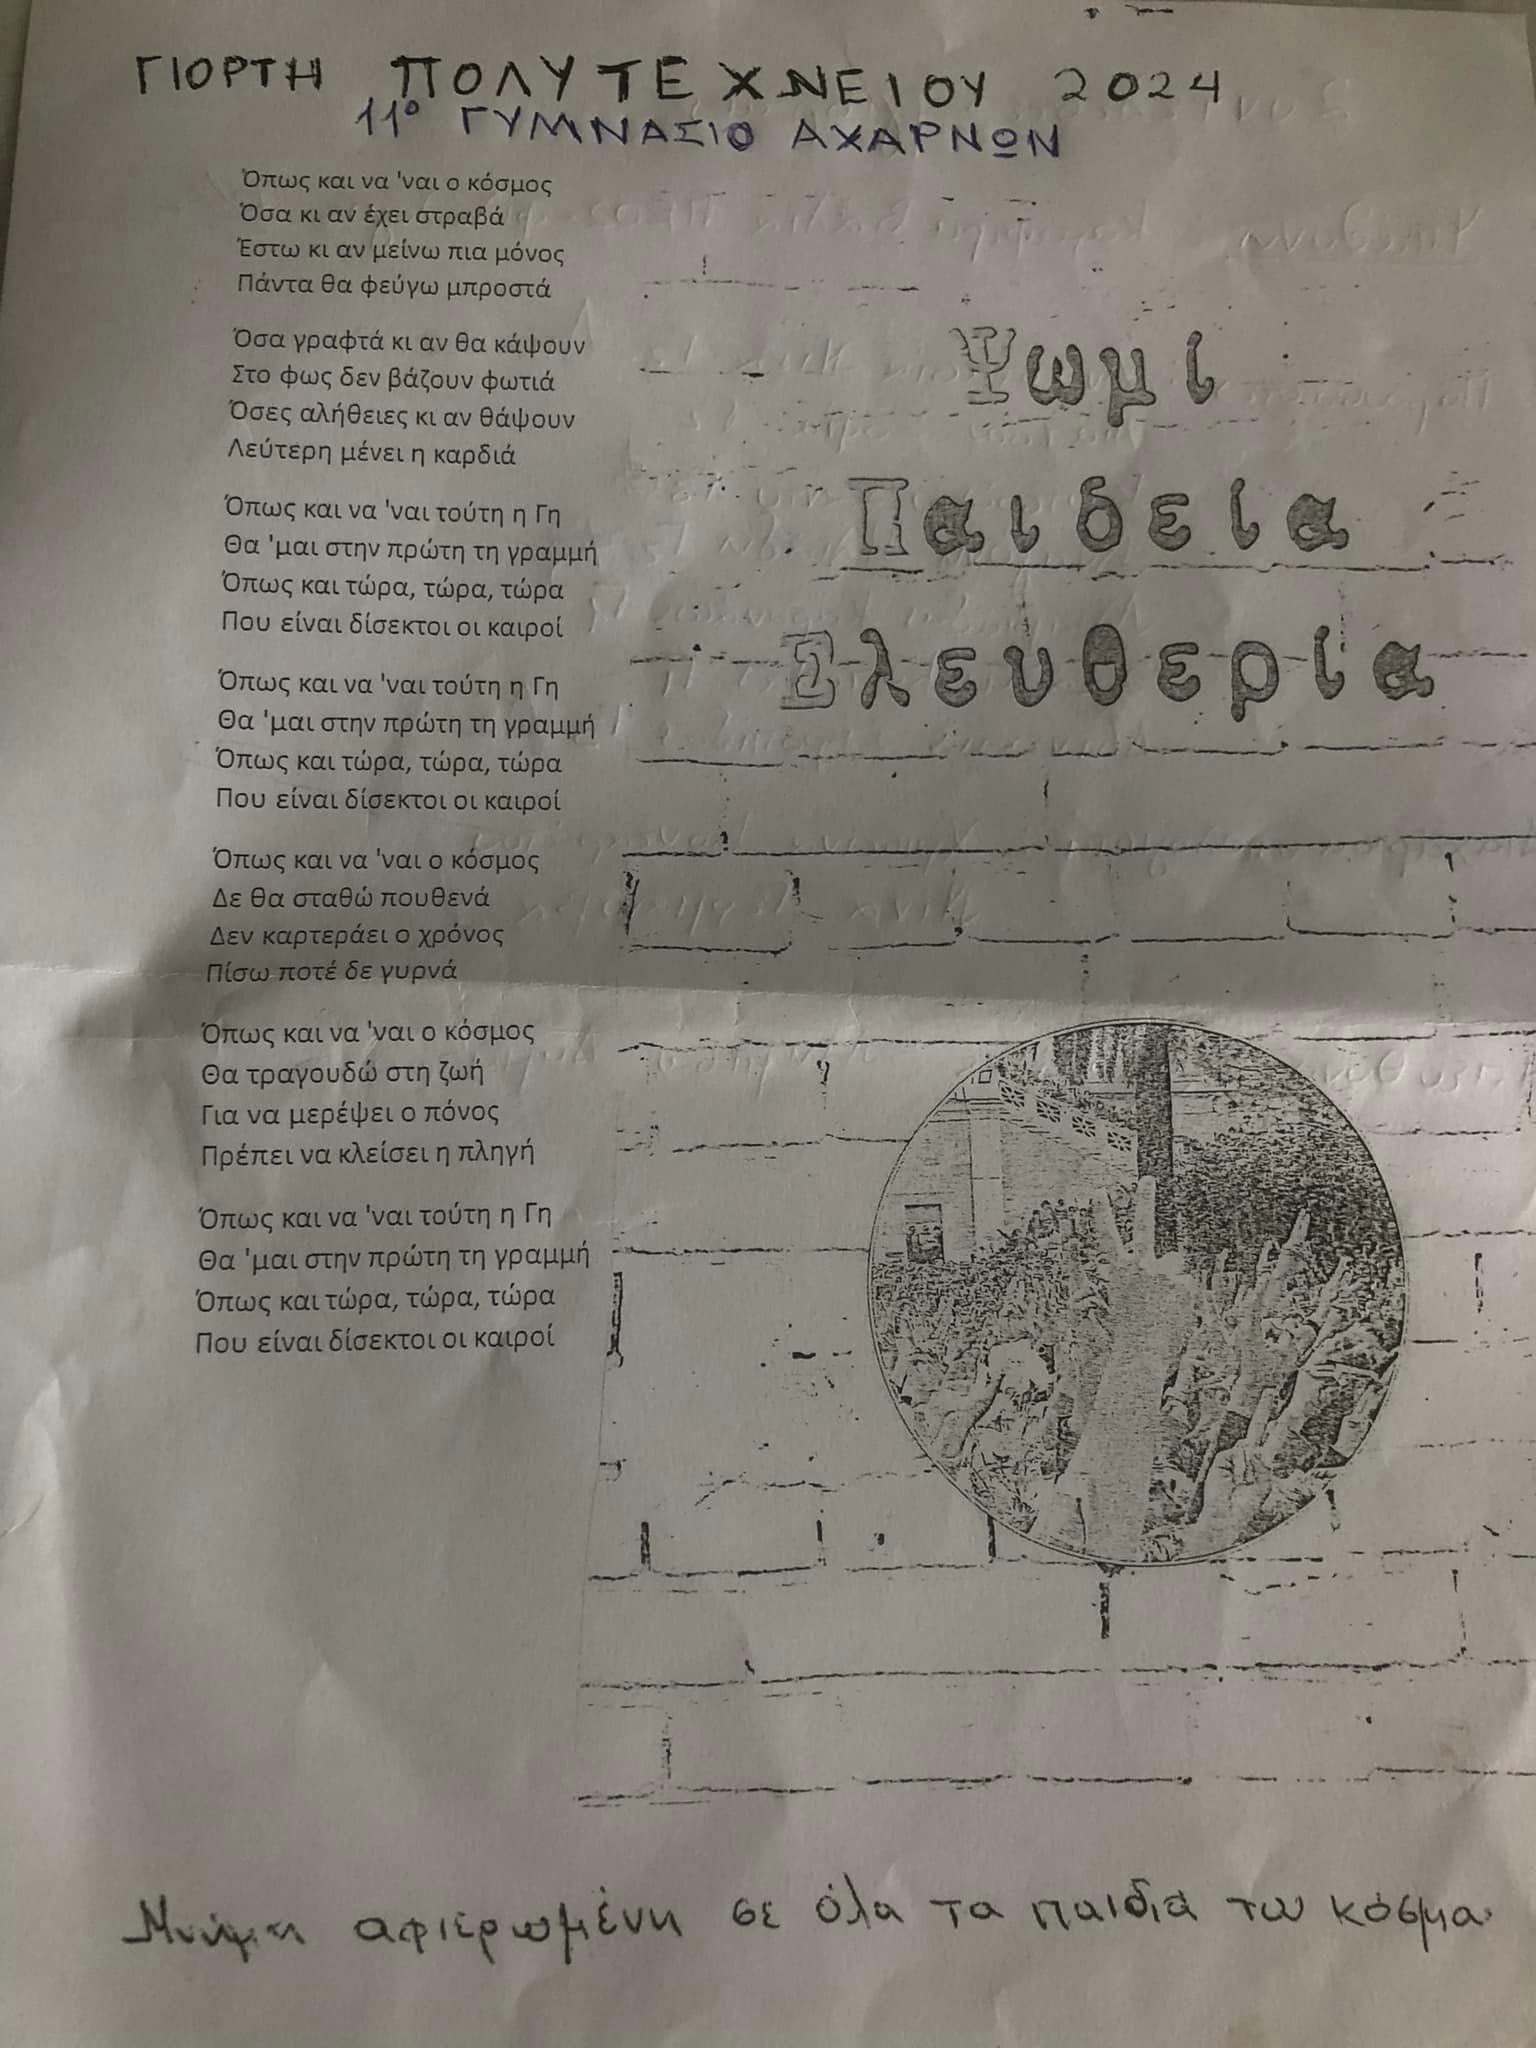 ΓΙΟΡΤΗ ΠΟΛΥΤΕΧΝΕΙΟΥ 2024
11º ΓΥΜΝΑΣΙΟ ΑΧΑΡΝΩΝ
Όπως και να 'ναι ο κόσμος
Όσα κι αν έχει στραβά
Έστω κι αν μείνω πια μόνος
Πάντα θα φεύγω μπροστά
Όσα γραφτά κι αν θα κάψουν
Στο φως δεν βάζουν φωτιά
Όσες αλήθειες κι αν θάψουν
Λεύτερη μένει η καρδιά
Όπως και να 'ναι τούτη η Γη
Θα 'μαι στην πρώτη τη γραμμή
Όπως και τώρα, τώρα, τώρα
Που είναι δίσεκτοι οι καιροί
Όπως και να 'ναι τούτη η Γη
Θα 'μαι στην πρώτη τη γραμμή
Όπως και τώρα, τώρα, τώρα
Που είναι δίσεκτοι οι καιροί
Όπως και να 'ναι ο κόσμος
Δε θα σταθώ πουθενά
Δεν καρτεράει ο χρόνος
Πίσω ποτέ δε γυρνά
Όπως και να 'ναι ο κόσμος
Θα τραγουδώ στη ζωή
Για να μερέψει ο πόνος
Πρέπει να κλείσει η πληγή
Όπως και να 'ναι τούτη η Γη
Θα 'μαι στην πρώτη τη γραμμή
Όπως και τώρα, τώρα, τώρα
Που είναι δίσεκτοι οι καιροί
Ψωμί
Παιδεία
Ελευθερία
Μνήμη αφιερωμένη σε όλα τα παιδιά του κόσμου